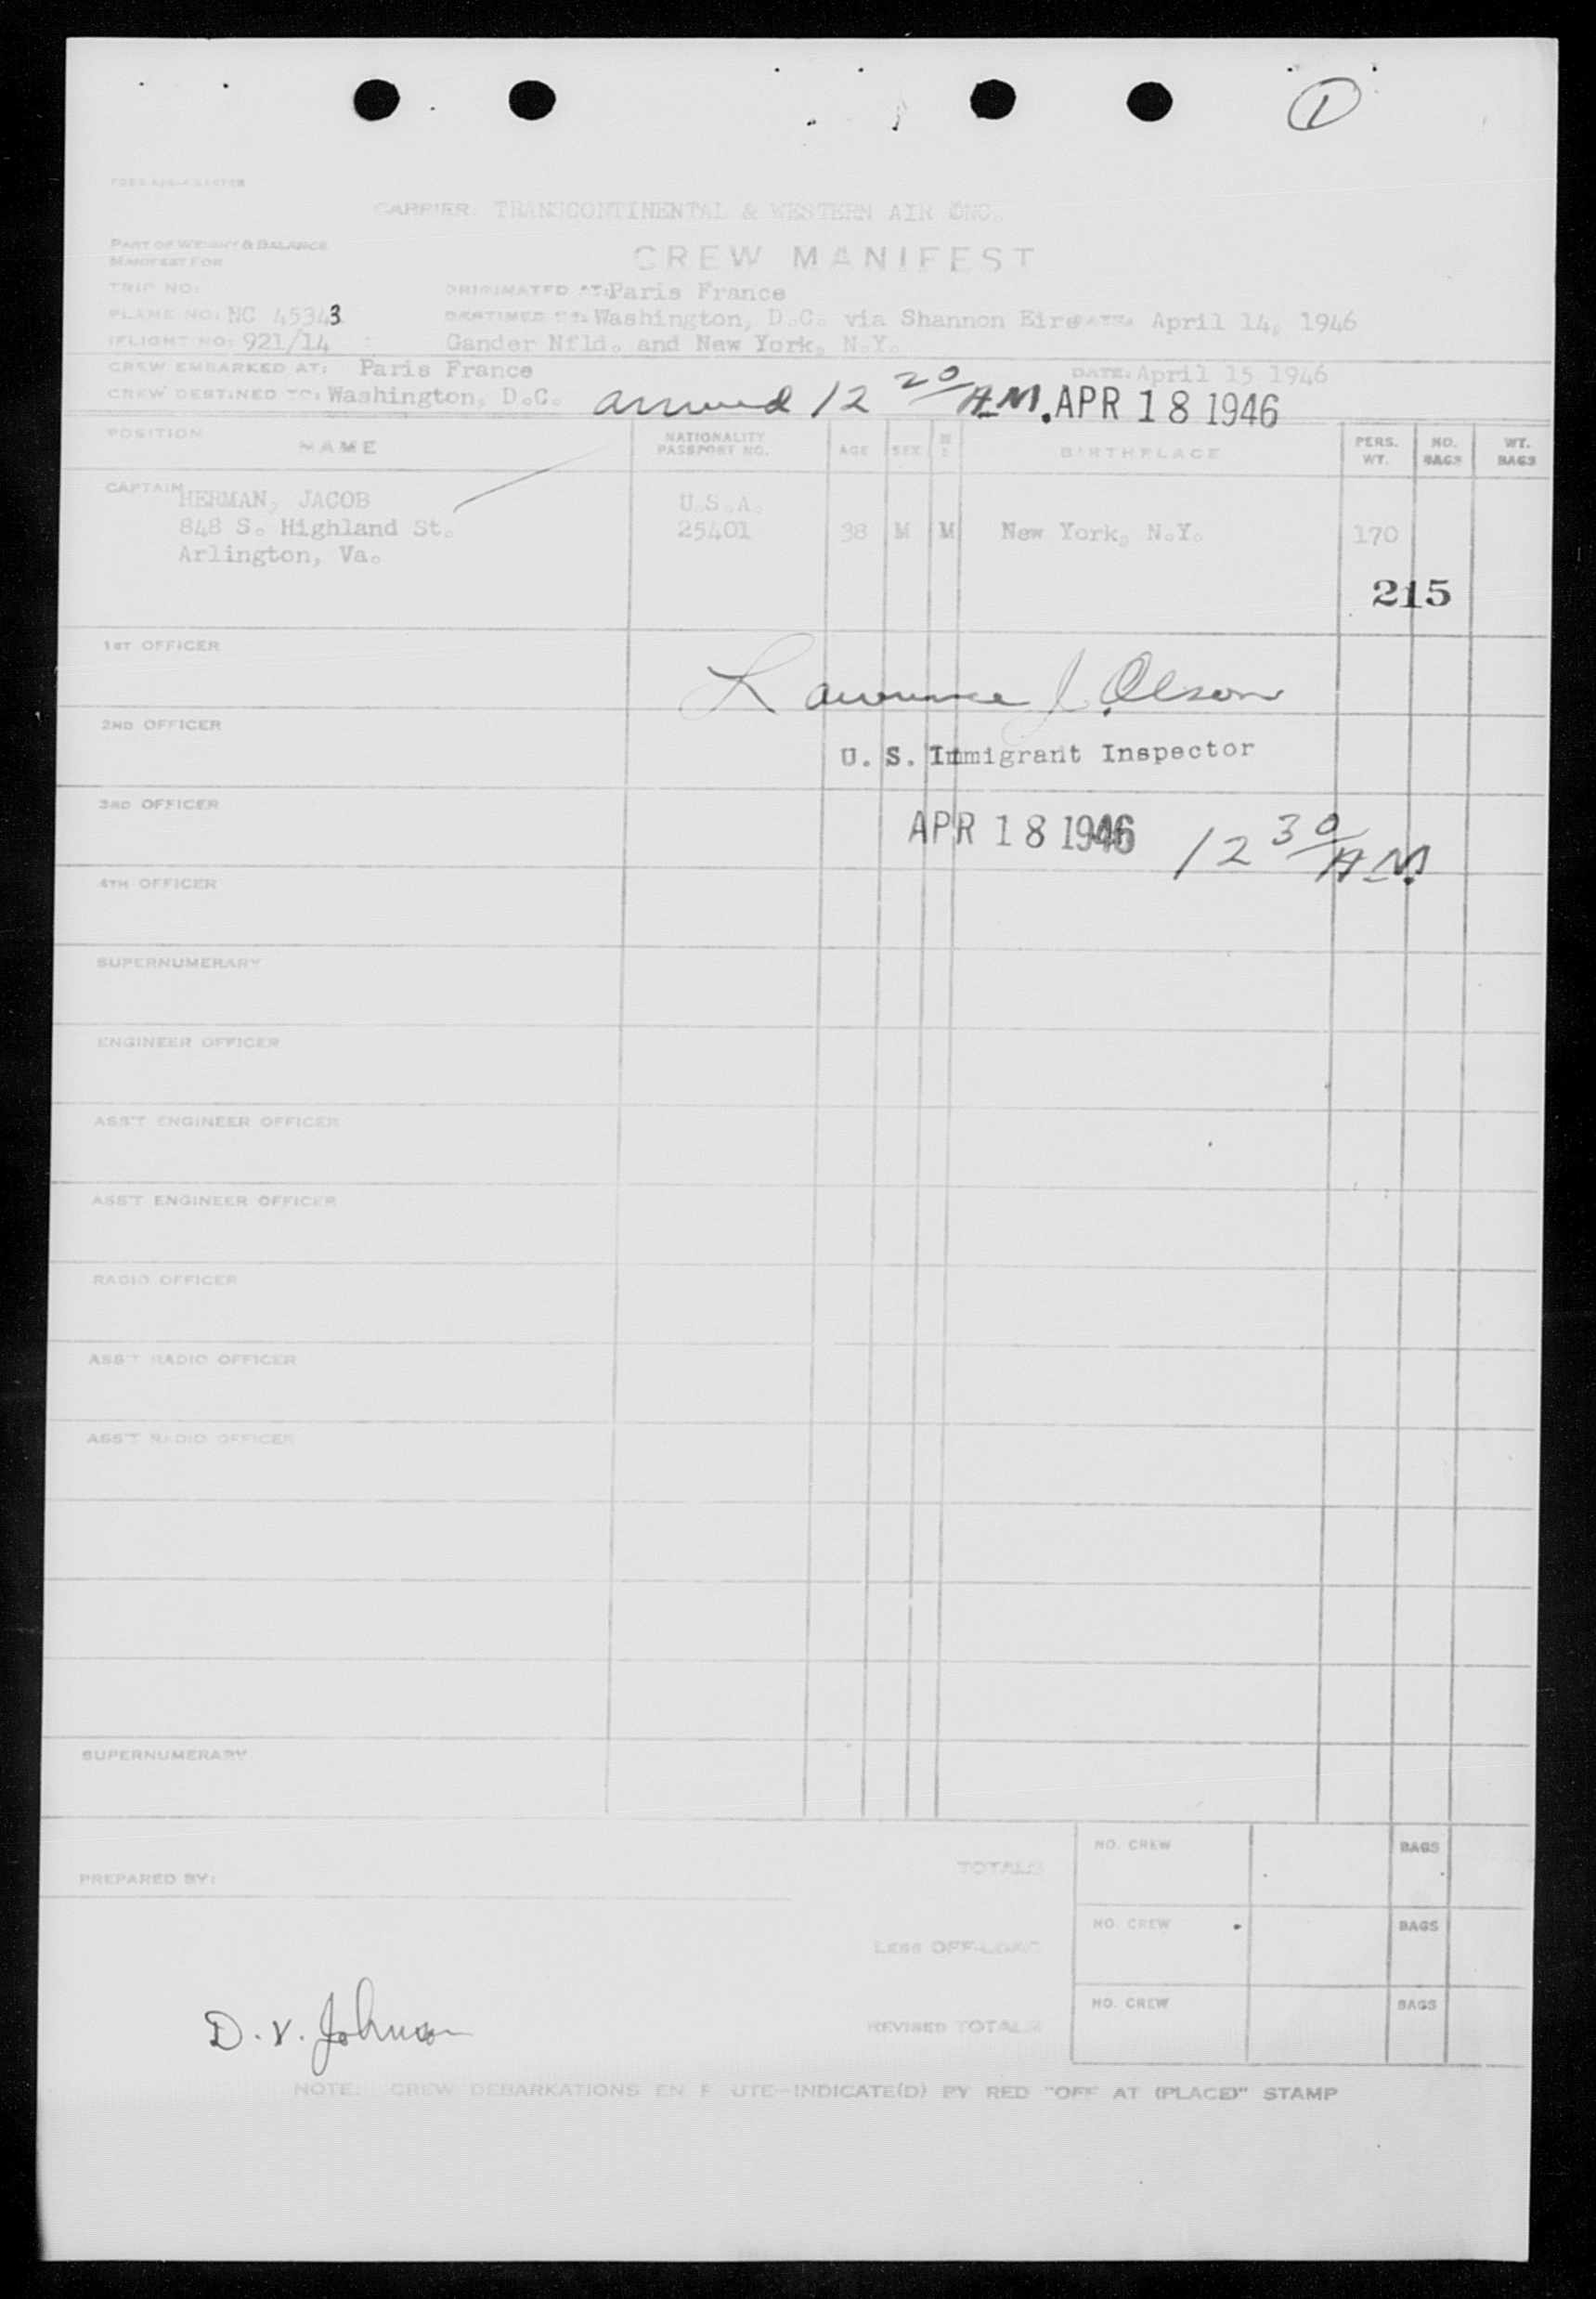 1
CARRIER: TRANSCONTINENTAL & WESTERN AIR INC.
PART OF WEIGHT & BALANCE
MANIFEST FOR
CREW MANIFEST
TRIP NO:
ORIGINATED AT: Paris France
PLANE NO: NC 45343
DESTINED TO: Washington, D.C. via Shannon Eire DATE: April 14, 1946
FLIGHT NO: 921/14
Gander Nfld. and New York, N.Y.
CREW EMBARKED AT: Paris France
DATE: April 15 1946
CREW DESTINED TO: Washington, D.C.
arrived 12 20 AM. APR 18 1946
POSITION NAME NATIONALITY PASSPORT NO. AGE SEX BIRTHPLACE PERS. WT. NO. BAGS WT. BAGS
CAPTAIN HERMAN, JACOB U.S.A.
848 S. Highland St. 25401 38 M M New York, N.Y. 170
Arlington, Va.
215
1ST OFFICER
Lawrence J. Olson
2ND OFFICER
U. S. Immigrant Inspector
3RD OFFICER
APR 18 1946 12 30 AM
4TH OFFICER
SUPERNUMERARY
ENGINEER OFFICER
ASS'T ENGINEER OFFICER
ASS'T ENGINEER OFFICER
RADIO OFFICER
ASS'T RADIO OFFICER
ASS'T RADIO OFFICER
SUPERNUMERARY
TOTALS NO. CREW BAGS
PREPARED BY:
LESS OFF-LOAD NO. CREW BAGS
REVISED TOTALS NO. CREW BAGS
D. V. Johnson
NOTE: CREW DEBARKATIONS EN R UTE-INDICATE(D) BY RED "OFF AT (PLACE)" STAMP